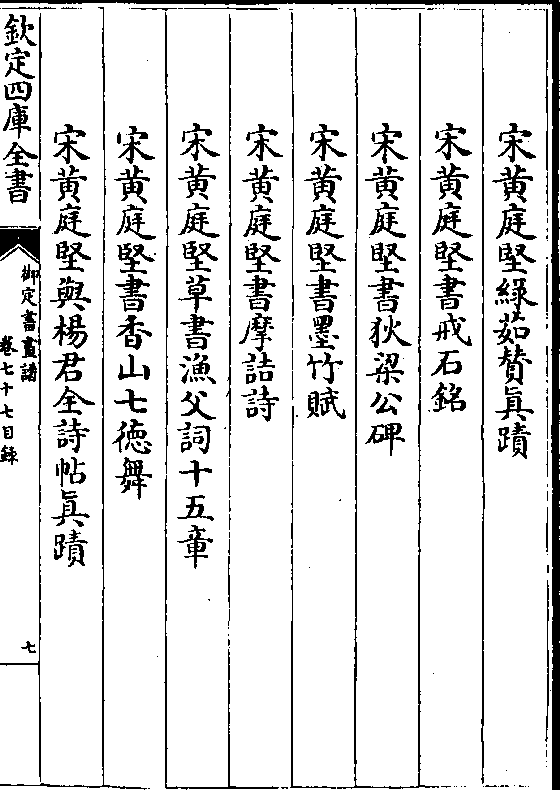 宋黄庭堅緑茹賛眞蹟
宋黄庭堅書戒石銘
宋黄庭堅書狄梁公碑
宋黄庭堅書墨竹賦
宋黄庭堅書摩詰詩
宋黄庭堅草書漁父詞十五章
宋黄庭堅書香山七徳舞
宋黄庭堅與楊君全詩帖眞蹟
欽定四庫全書
御定書畫譜
卷七十七目錄
七